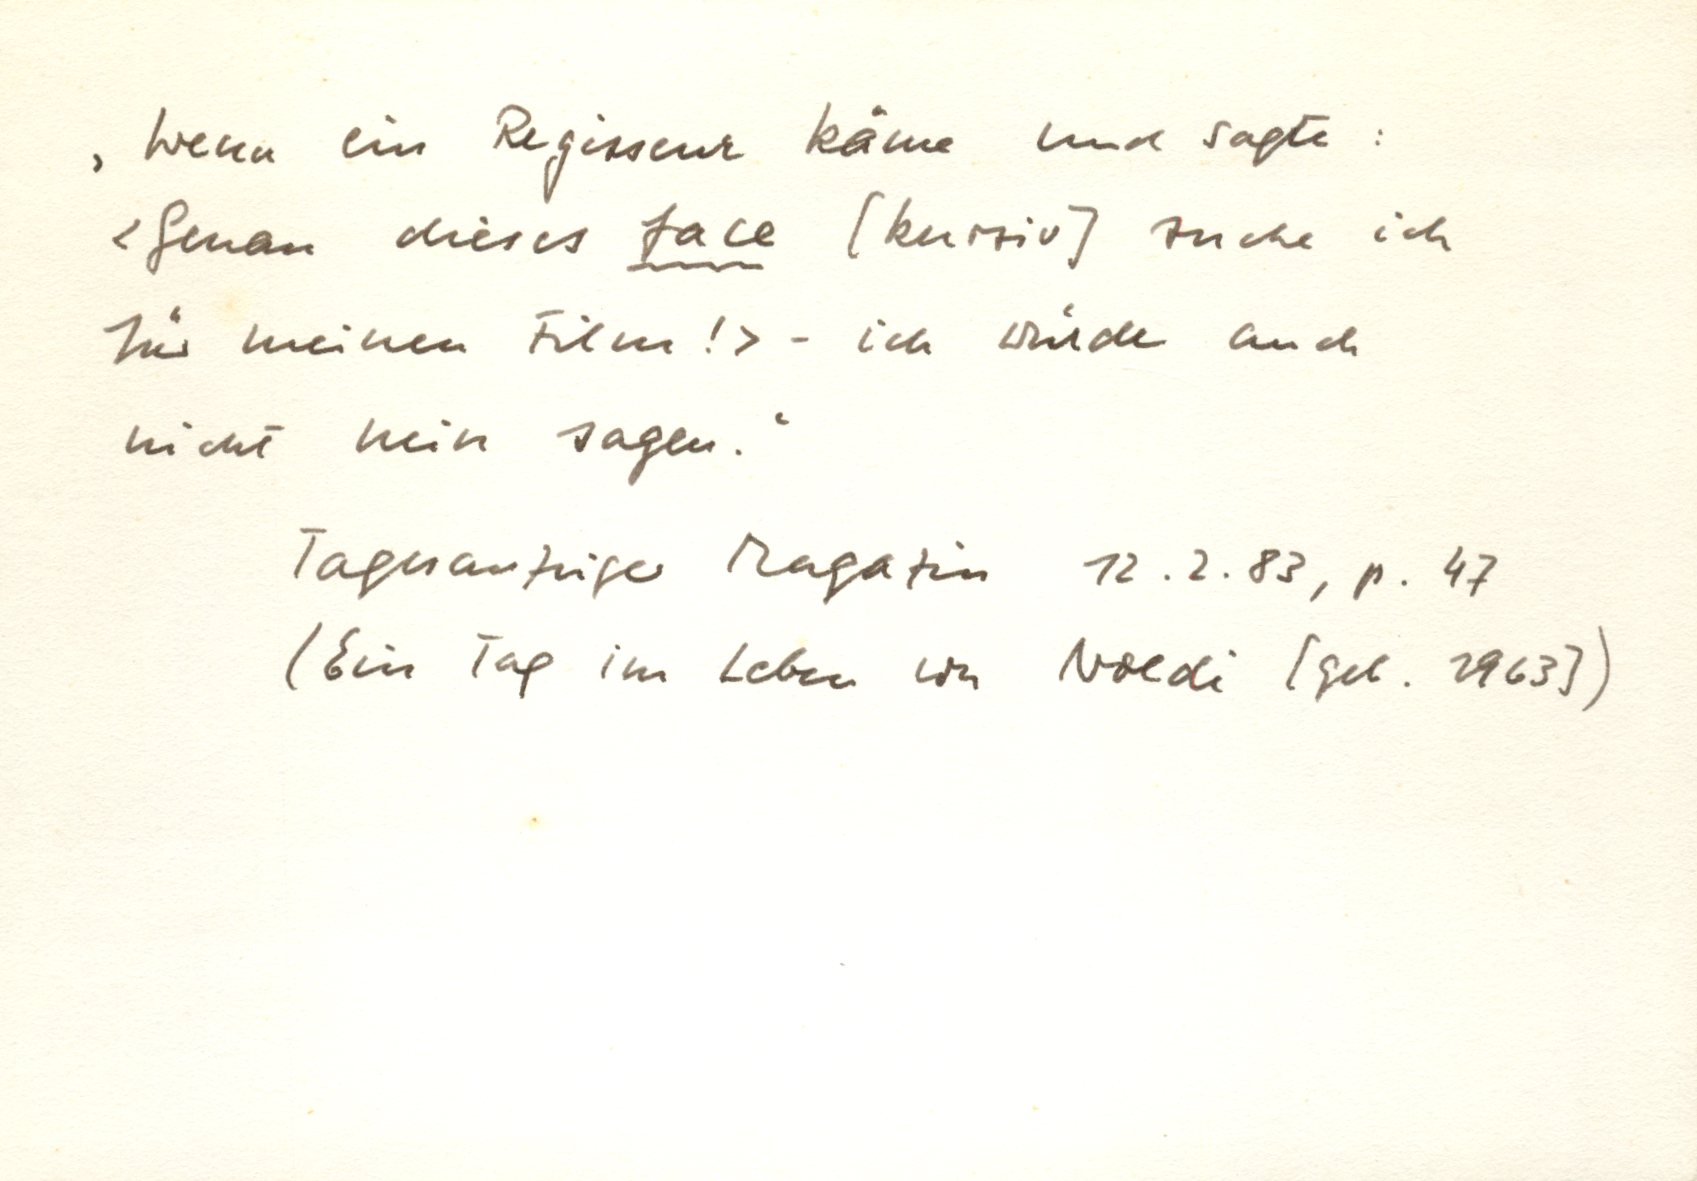 ‚Wenn ein Regisseur käme und sagte:
<Genau dieses face [kursiv] suche ich
für meinen Film!> - ich würde auch
nicht nein sagen.‘
Tagesanzeiger Magazin 12.2.83, p. 47
(Ein Tag im Leben von Noldi [geb. 1963])